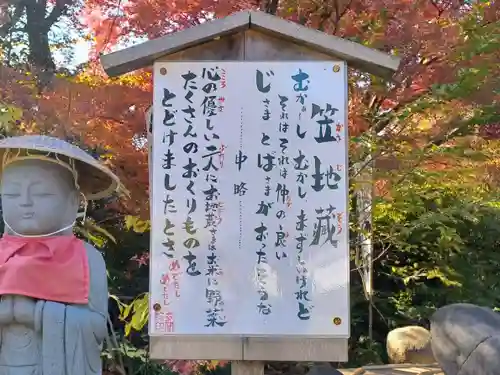 笠地蔵
むか〜しむかしまずしいけれど
それはそれは仲の良い
じさまとばさまがおったげな
中略
心の優しい二人にお地蔵さまはお米に野菜
たくさんのおくりものを
とどけましたとさ
めでたし
めでたし